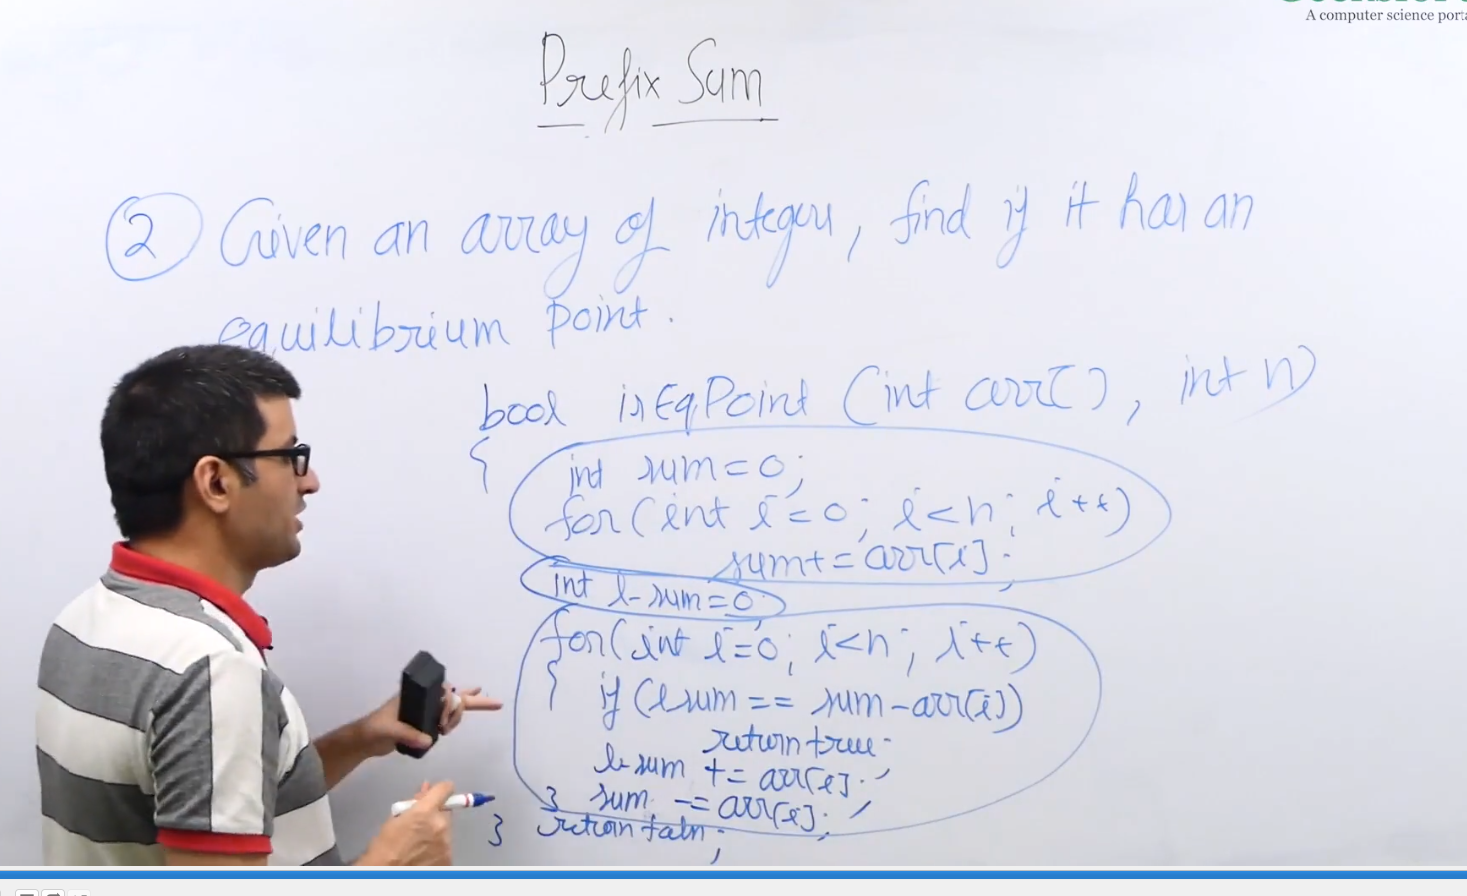 A computer science port
Prefix Sum
2 Given an array of integers, find if it has an
equilibrium point.
bool isEqPoint (int arr[], int n)
{
int sum=0;
for(int i=0; i<n; i++)
sum+=arr[i];
int l_sum=0;
for(int i=0; i<n; i++)
{ if (l_sum == sum-arr[i])
return true;
l_sum += arr[i];
} sum -= arr[i];
} return false;